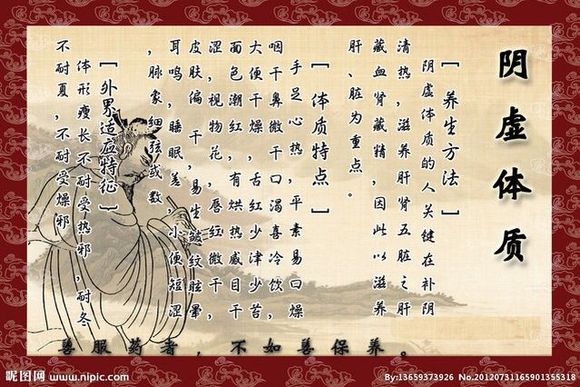 阴虚体质
[养生方法]
阴虚体质的人关键在补阴
清热，滋养肝肾五脏之肝
藏血肾藏精，因此以滋养
肝、脏为重点。
[体质特点]
手足心热，平素易口燥
咽干鼻微干口渴喜冷饮，
大便干燥，舌红少津少苔
面色潮红，有烘热感目干
涩，视物花，唇红微干，
皮肤偏干，易生皱纹眩晕
耳鸣，睡眠差，小便短涩
，脉象细弦或数
[外界适应特征]
体形瘦长不耐受热邪，耐冬
不耐夏，不耐受燥邪
善服药者，不如善保养。
昵图网 www.nipic.com
By:13659373926 No.20120731165901355318